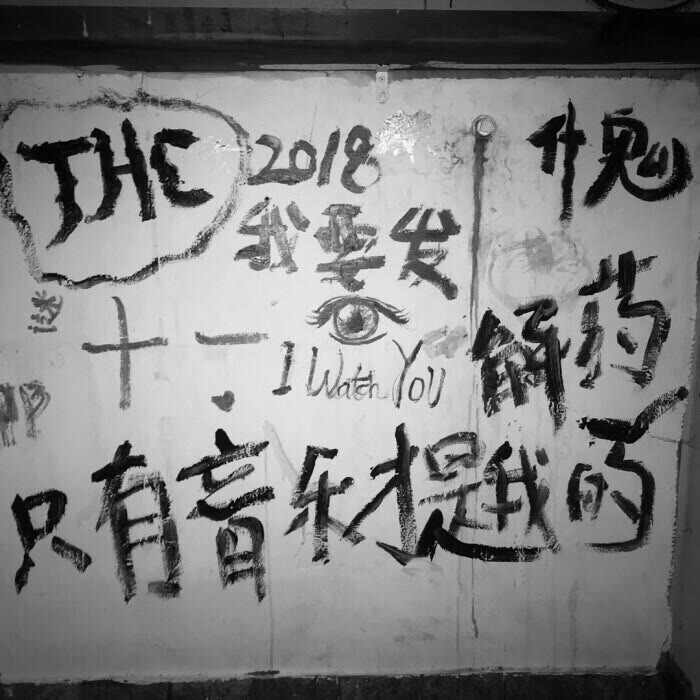 THC
2018
我要发
谜
十一
I Watch You
解药
只有音乐才是我的